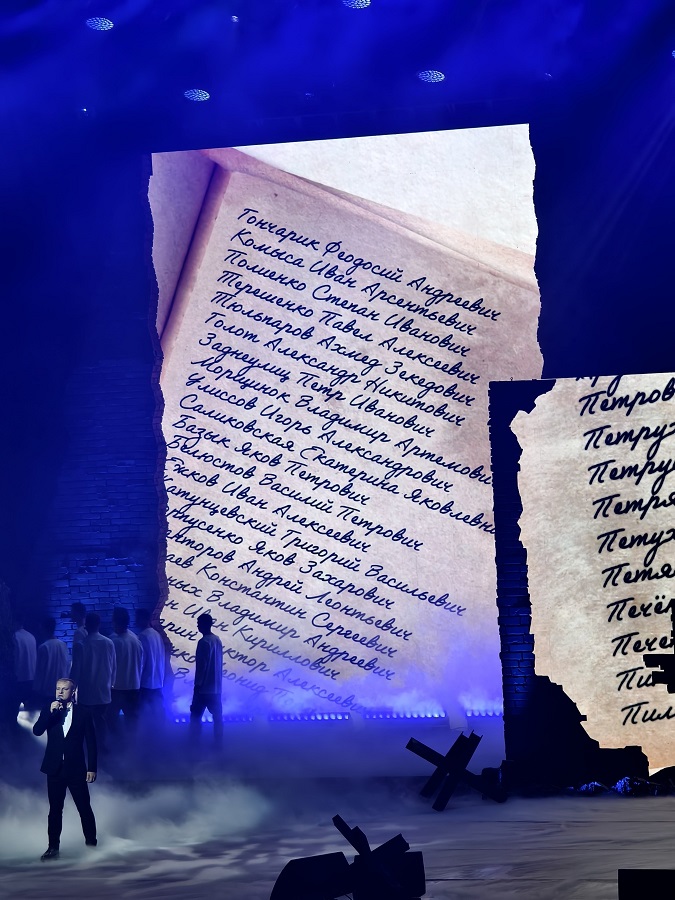 Гончарик Феодосий Андреевич
Комыса Иван Арсентьевич
Полиенко Степан Иванович
Терешенко Павел Алексеевич
Тюльпаров Ахмед Зекедович
Голот Александр Никитович
Заднеулиц Петр Иванович
Морщинок Владимир Артемович
Улиссов Игорь Александрович
Саликовская Екатерина Яковлевна
Базык Яков Петрович
Белюстов Василий Петрович
Ежков Иван Алексеевич
Катунцевский Григорий Васильевич
Яков Захарович
Андрей Леонтьевич
Константин Сергеевич
Владимир Андреевич
Иван Кириллович
Алексеевич
Петров
Петру
Петру
Петря
Петух
Петя
Печён
Пече
Пи
Пил